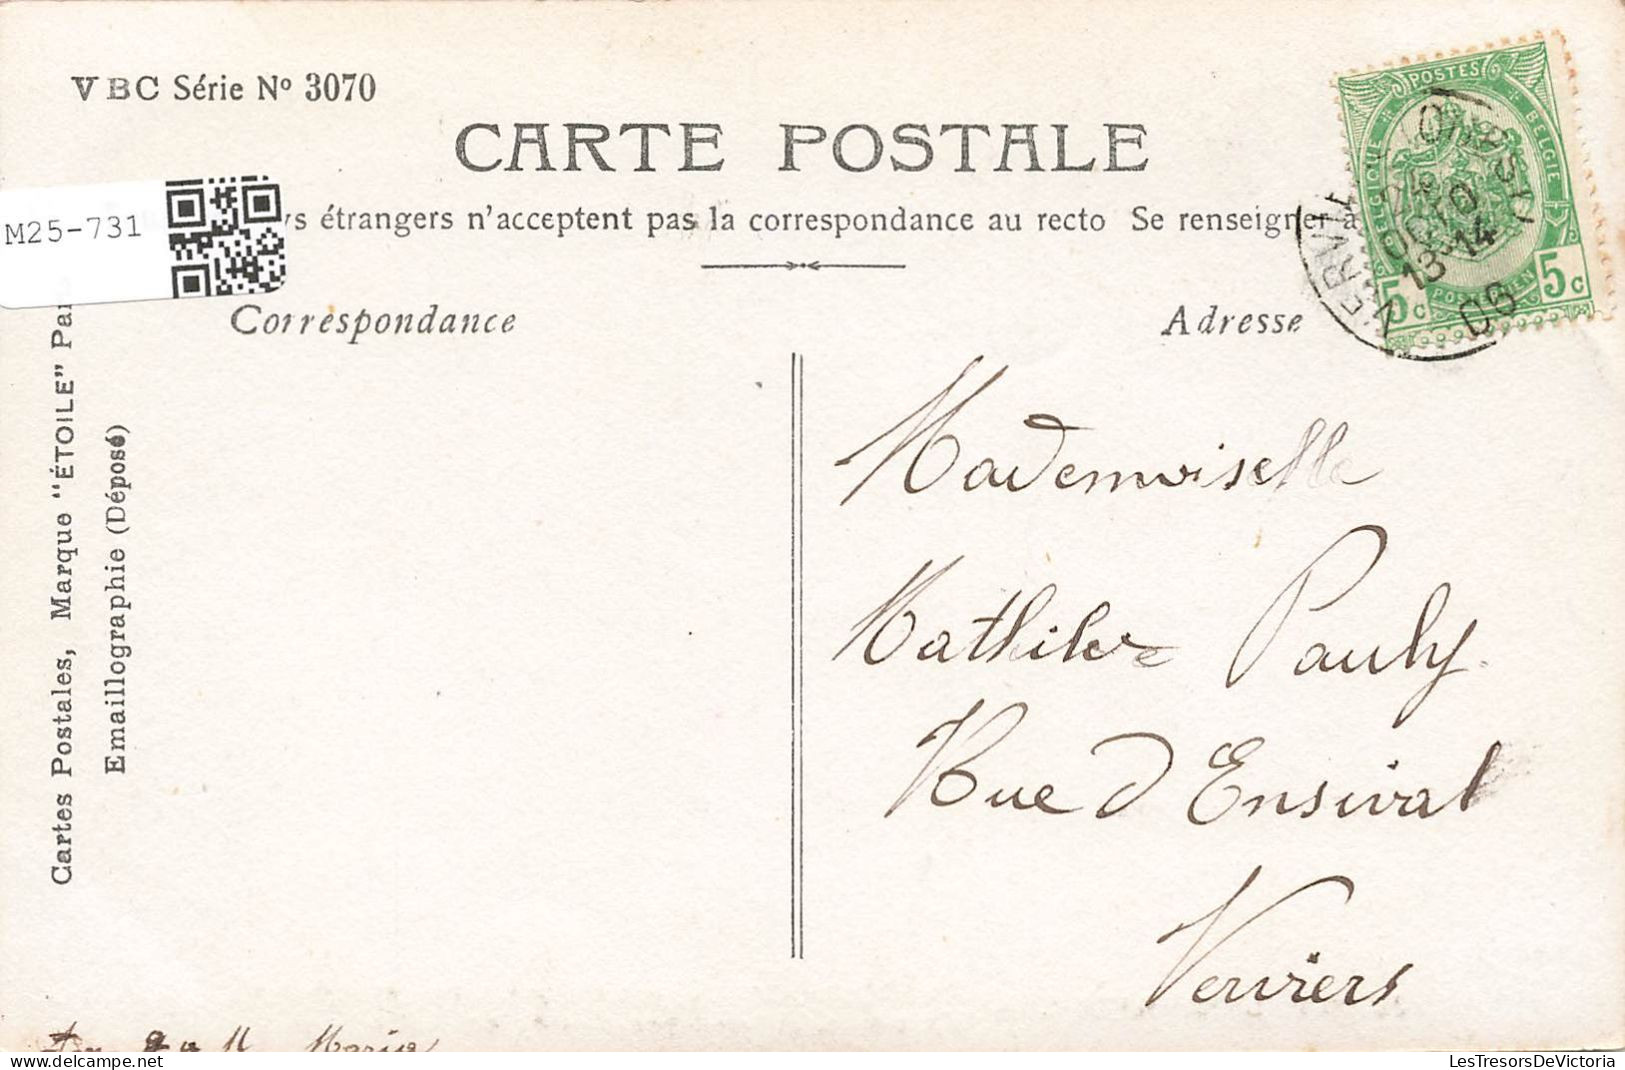 VBC Série Nº 3070
CARTE POSTALE
M25-731
étrangers n'acceptent pas la correspondance au recto Se renseigner à
Correspondance
Adresse
POSTES
BELGIQUE BELGIE
5c 5c
VERVIERS
13-14
06
Cartes Postales, Marque "ÉTOILE"
Emaillographie (Déposé)
Mademoiselle
Mathilde Pauly
Rue d'Ensival
Verviers
Maria
LesTresorsDeVictoria